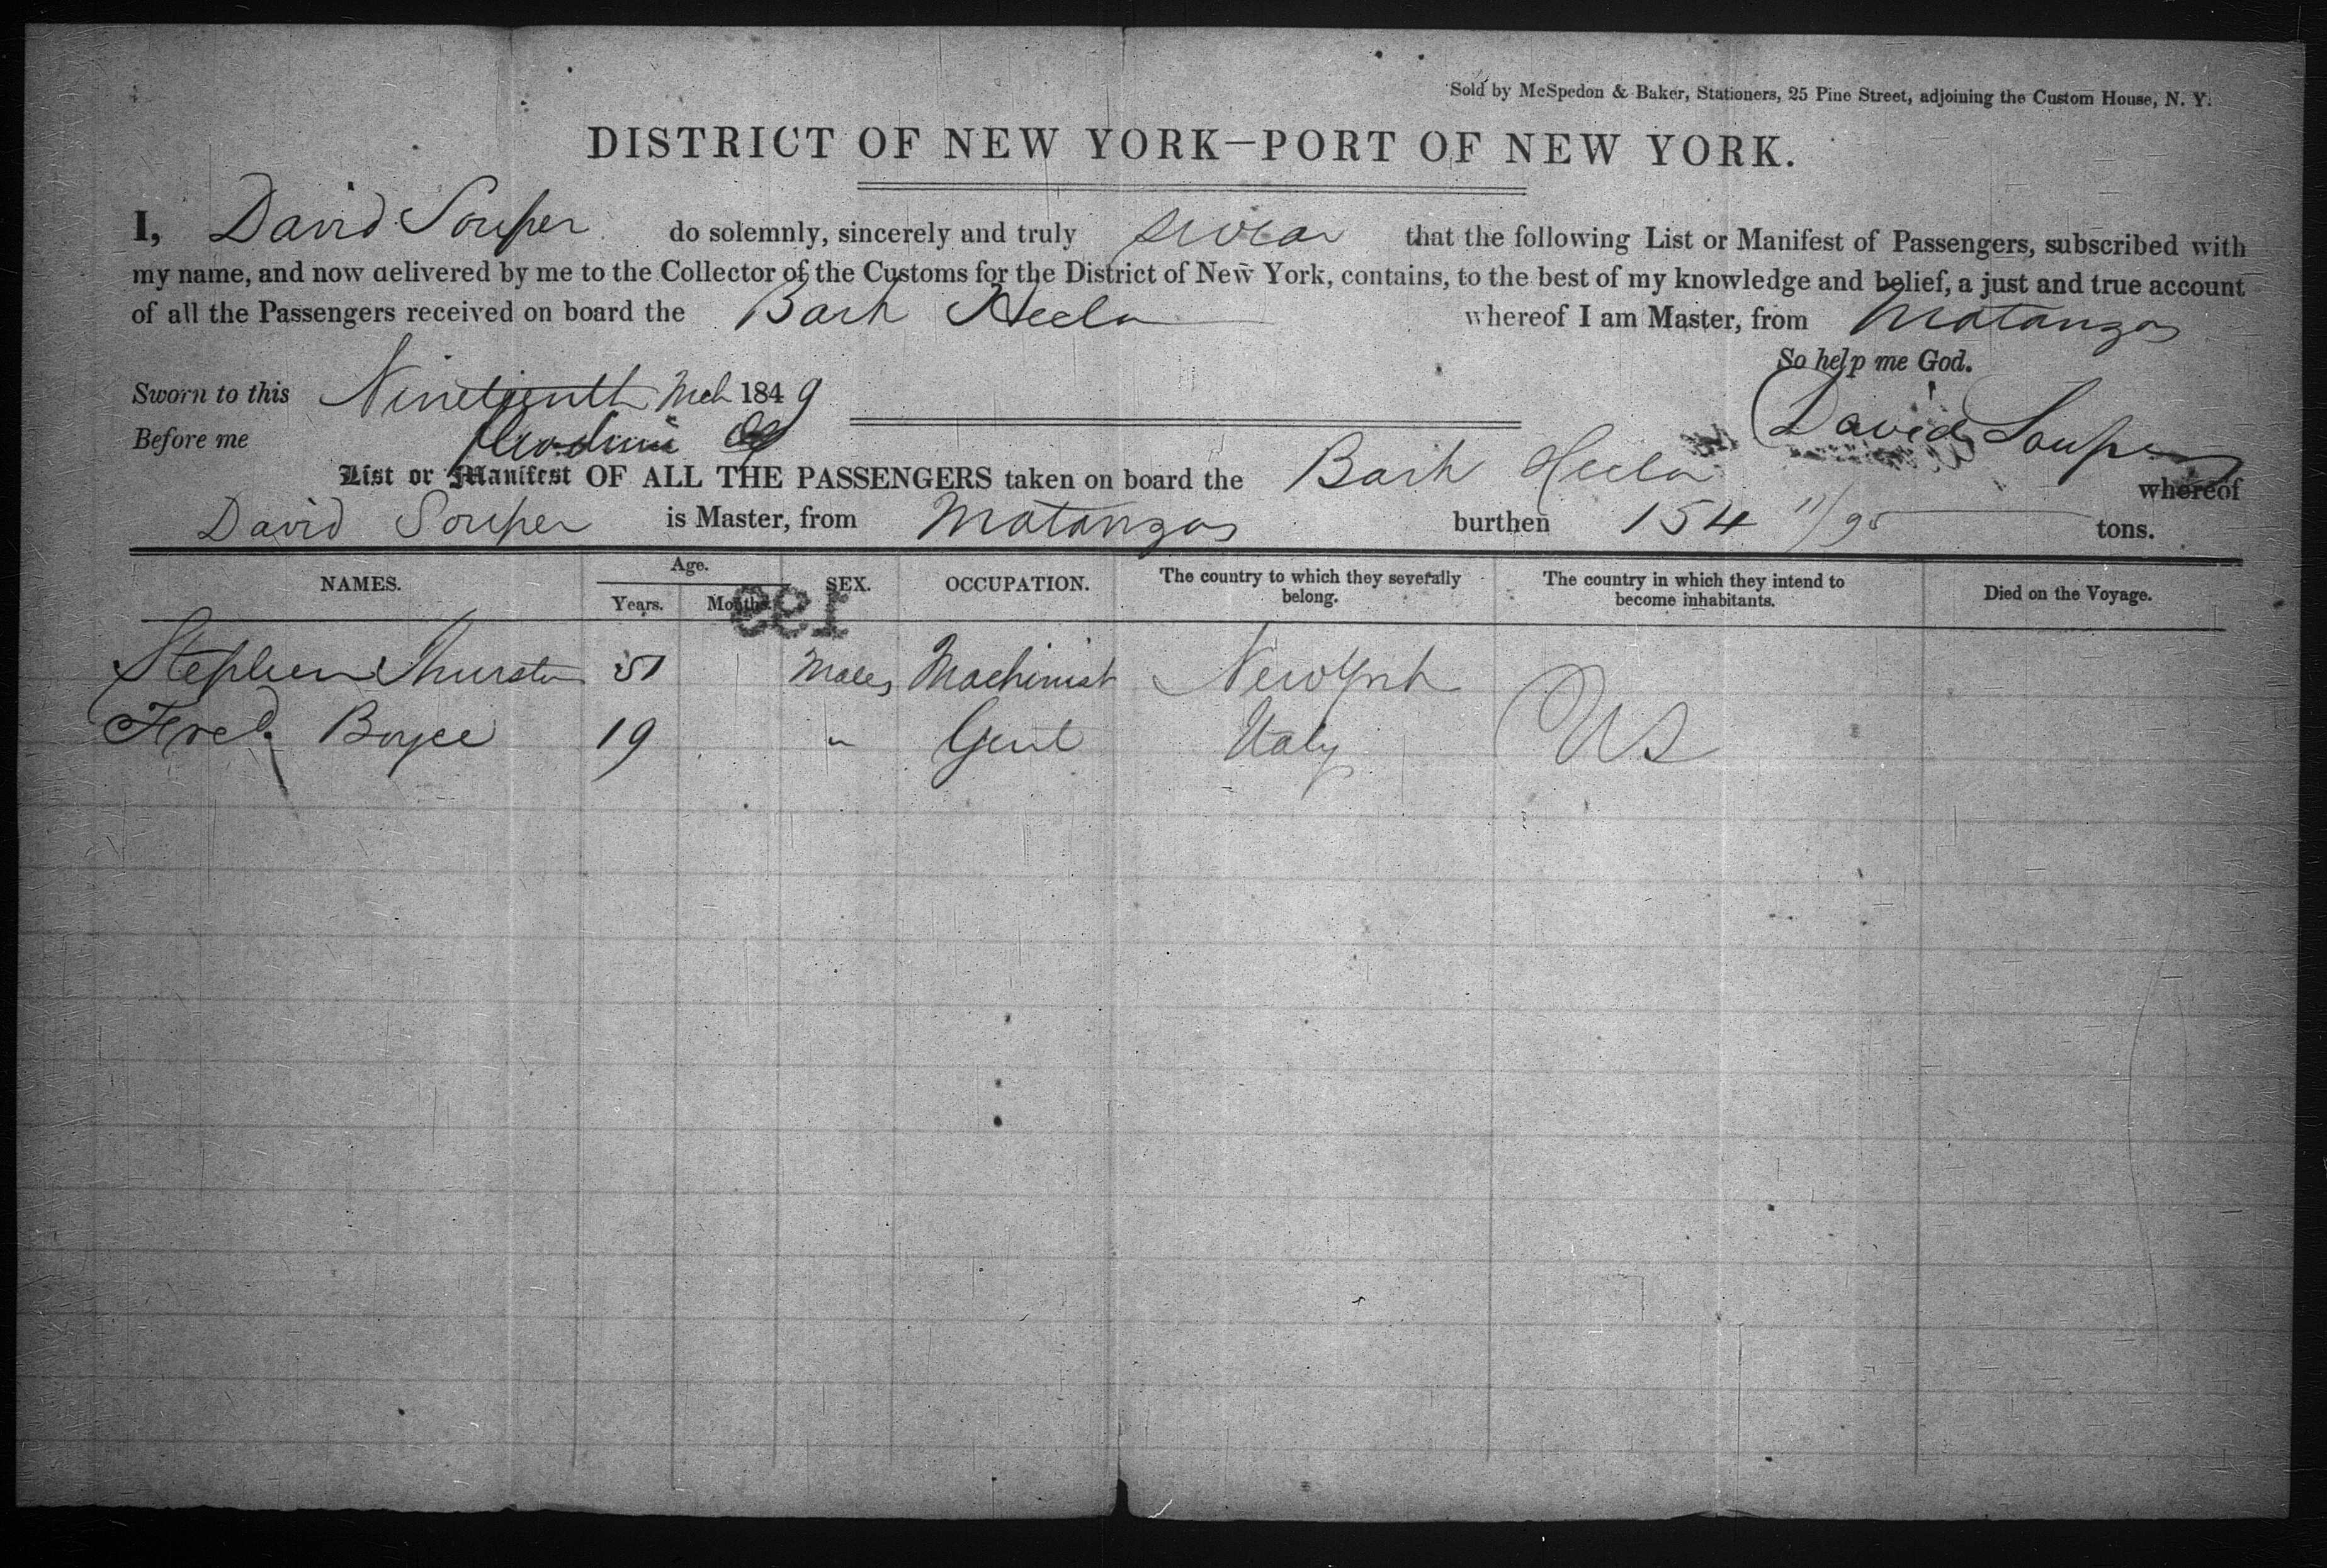 Sold by McSpedon & Baker, Stationers, 25 Pine Street, adjoining the Custom House, N. Y.
DISTRICT OF NEW YORK—PORT OF NEW YORK.
I, David Souper do solemnly, sincerely and truly swear that the following List or Manifest of Passengers, subscribed with
my name, and now delivered by me to the Collector of the Customs for the District of New York, contains, to the best of my knowledge and belief, a just and true account
of all the Passengers received on board the Bark Hecla whereof I am Master, from Matanzas
So help me God.
Sworn to this Nineteenth Mch 1849
David Souper
Before me
List or Manifest OF ALL THE PASSENGERS taken on board the Bark Hecla whereof
David Souper is Master, from Matanzas burthen 154 11/95 tons.
NAMES. Age. SEX. OCCUPATION. The country to which they severally belong. The country in which they intend to become inhabitants. Died on the Voyage.
Years. Months.
199
Stephen Thurston 51 Males Machinist New York
Fred. Boyce 19 " Gent Italy US